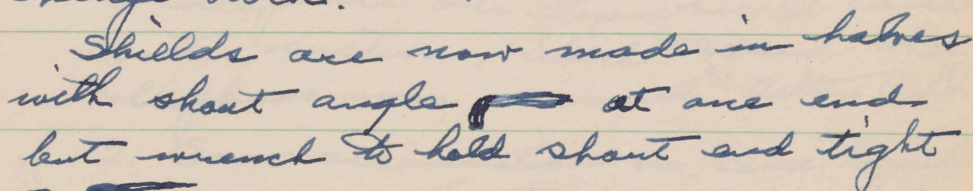 Shields are now made in halves
with short angle at one end
but wrench to hold short end tight